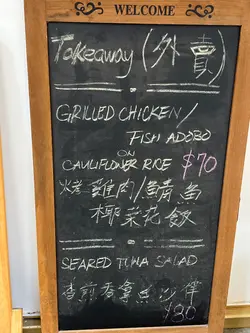 WELCOME
Takeaway (外賣)
GRILLED CHICKEN/
FISH ADOBO
ON
CAULIFLOWER RICE $70
烤雞肉/鯖魚
椰菜花飯
SEARED TUNA SALAD
香煎吞拿魚沙律
$80